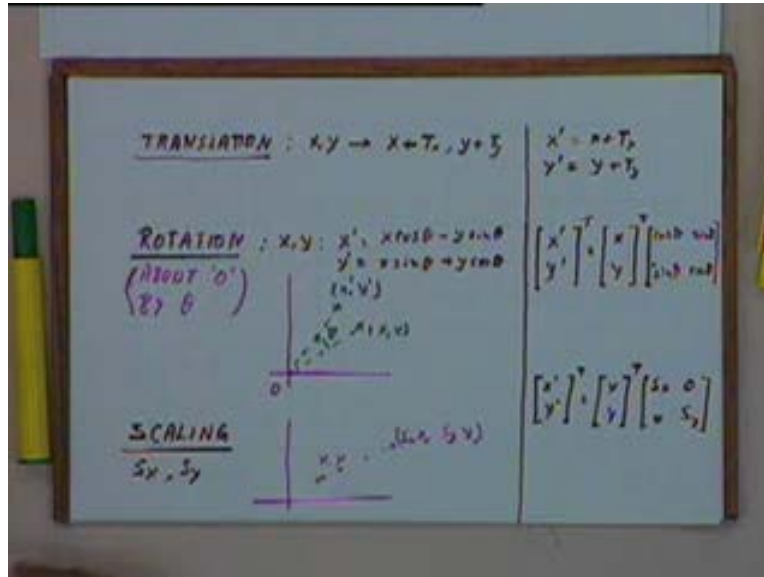 TRANSLATION : x,y → x+Tx, y+Ty
x' = x+Tx
y' = y+Ty
ROTATION : x,y : x' = x cosθ - y sinθ
y' = x sinθ + y cosθ
(ABOUT 'O'
BY θ)
(x',y')
(x,y)
O
[x' y']^T = [x y]^T [cosθ sinθ
-sinθ cosθ]
SCALING
Sx, Sy
x,y
(Sx x, Sy y)
[x' y']^T = [x y]^T [Sx 0
0 Sy]